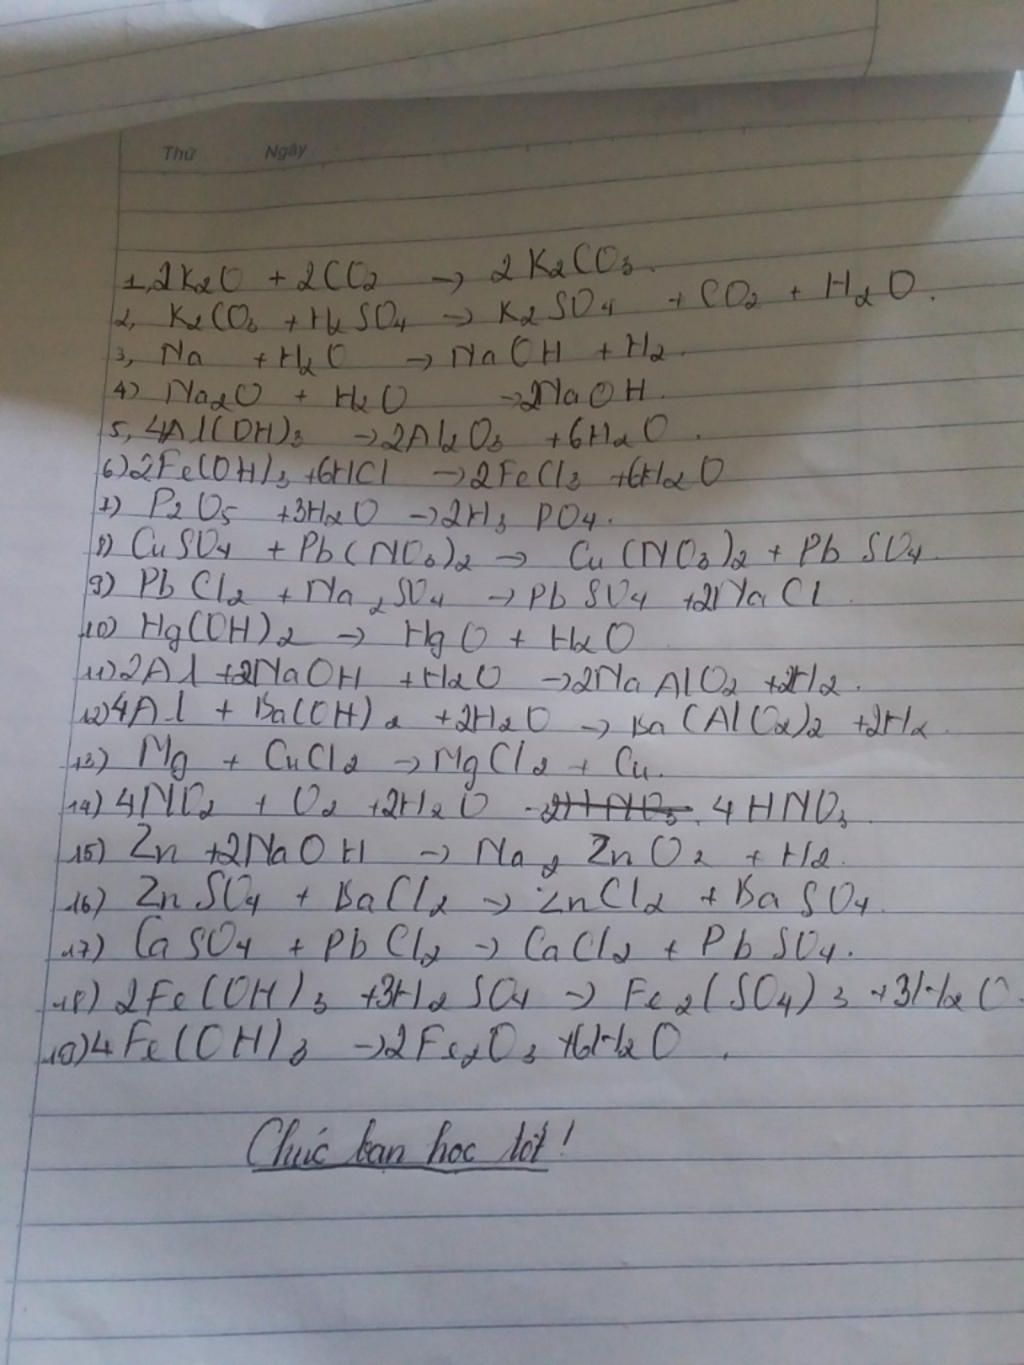 Thứ Ngày
1, 2K2O + 2CO2 → 2K2CO3.
2, K2CO3 + H2SO4 → K2SO4 + CO2 + H2O.
3, Na + H2O → NaOH + H2.
4) Na2O + H2O → 2NaOH.
5, 4Al(OH)3 → 2Al2O3 + 6H2O.
6) 2Fe(OH)3 + 6HCl → 2FeCl3 + 6H2O
7) P2O5 + 3H2O → 2H3PO4.
8) CuSO4 + Pb(NO3)2 → Cu(NO3)2 + PbSO4.
9) PbCl2 + Na2SO4 → PbSO4 + 2NaCl.
10) Hg(OH)2 → HgO + H2O
11) 2Al + 2NaOH + H2O → 2NaAlO2 + 2H2.
12) 4Al + Ba(OH)2 + 2H2O → Ba(AlO2)2 + 2H2.
13) Mg + CuCl2 → MgCl2 + Cu.
14) 4NO2 + O2 + 2H2O → 2HNO3. 4HNO3.
15) Zn + 2NaOH → Na2ZnO2 + H2.
16) ZnSO4 + BaCl2 → ZnCl2 + BaSO4.
17) CaSO4 + PbCl2 → CaCl2 + PbSO4.
18) 2Fe(OH)3 + 3H2SO4 → Fe2(SO4)3 + 3H2O.
19) 4Fe(OH)3 → 2Fe2O3 + 6H2O.
Chúc bạn học tốt!